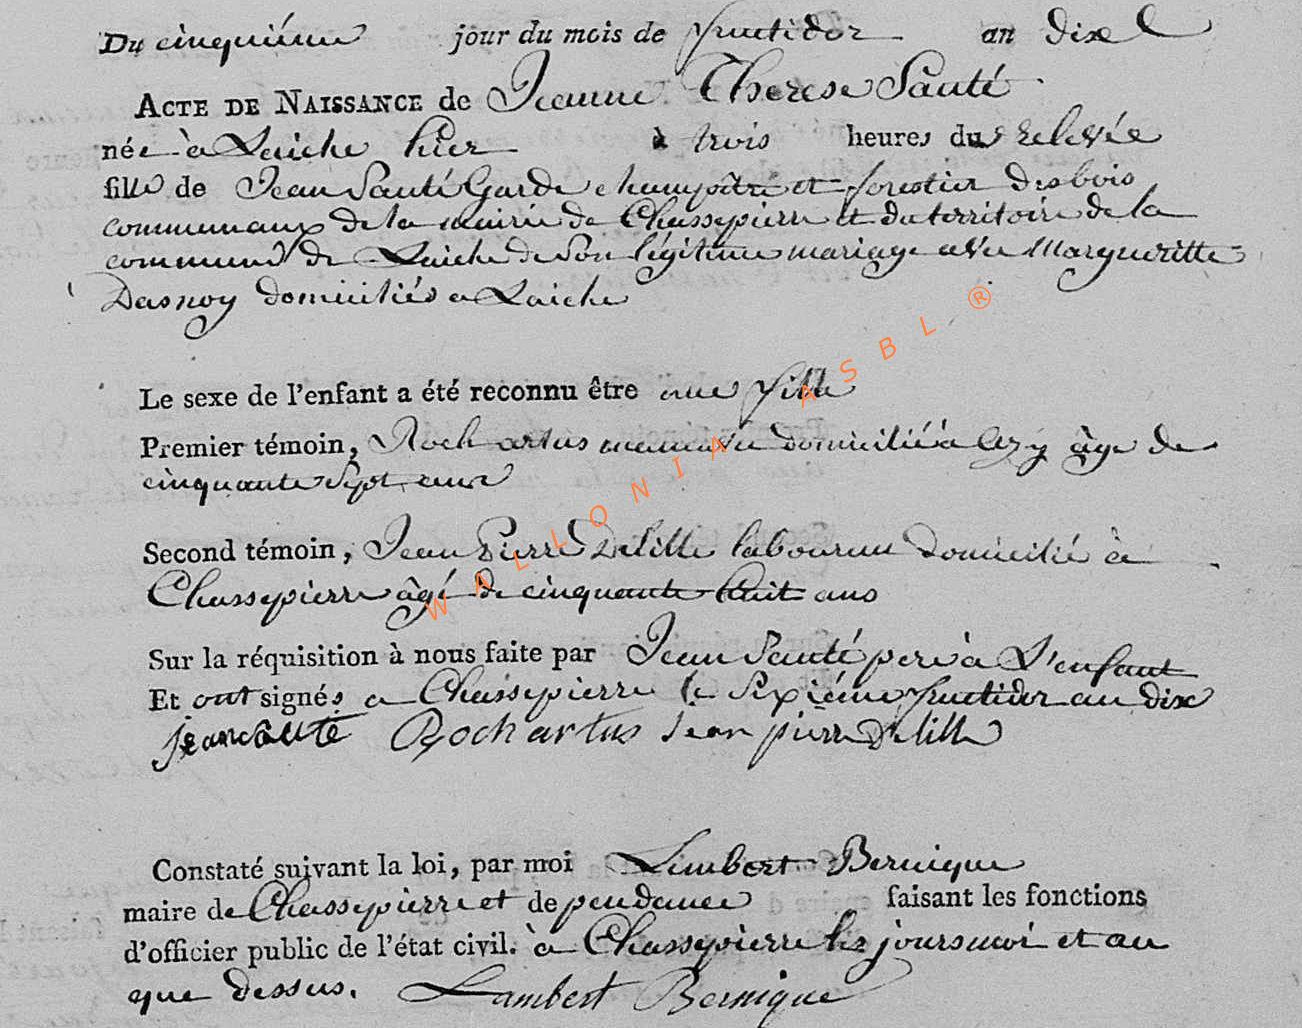 Du cinquiéme jour du mois de fructidor an dixe
ACTE DE NAISSANCE de Jeanne Therese Santé
née à Laiche hier à trois heures du relevée
fille de Jean Santé Garde champêtre et forestier des bois
communaux de la mairie de Chassepierre et du territoire de la
commune de Laiche de son légitime mariage avec Margueritte
Dasnoy domiciliés a Laiche
Le sexe de l'enfant a été reconnu être une fille
Premier témoin, Roch artus domicilié à âge de
cinquante sept ans
Second témoin, Jean Pierre Delille laboureur domicilié à
Chassepierre âgé de cinquante huit ans
Sur la réquisition à nous faite par Jean Santé pere à L'enfant
Et ont signés a Chassepierre le sixiéme fructidor an dix
jean santé Roch artus Jean pierre Delille
Constaté suivant la loi, par moi Lambert Bernique
maire de Chassepierre et dependance faisant les fonctions
d'officier public de l'état civil. à Chassepierre les jours moi et an
que dessus. Lambert Bernique
WALLONIA ASBL ®